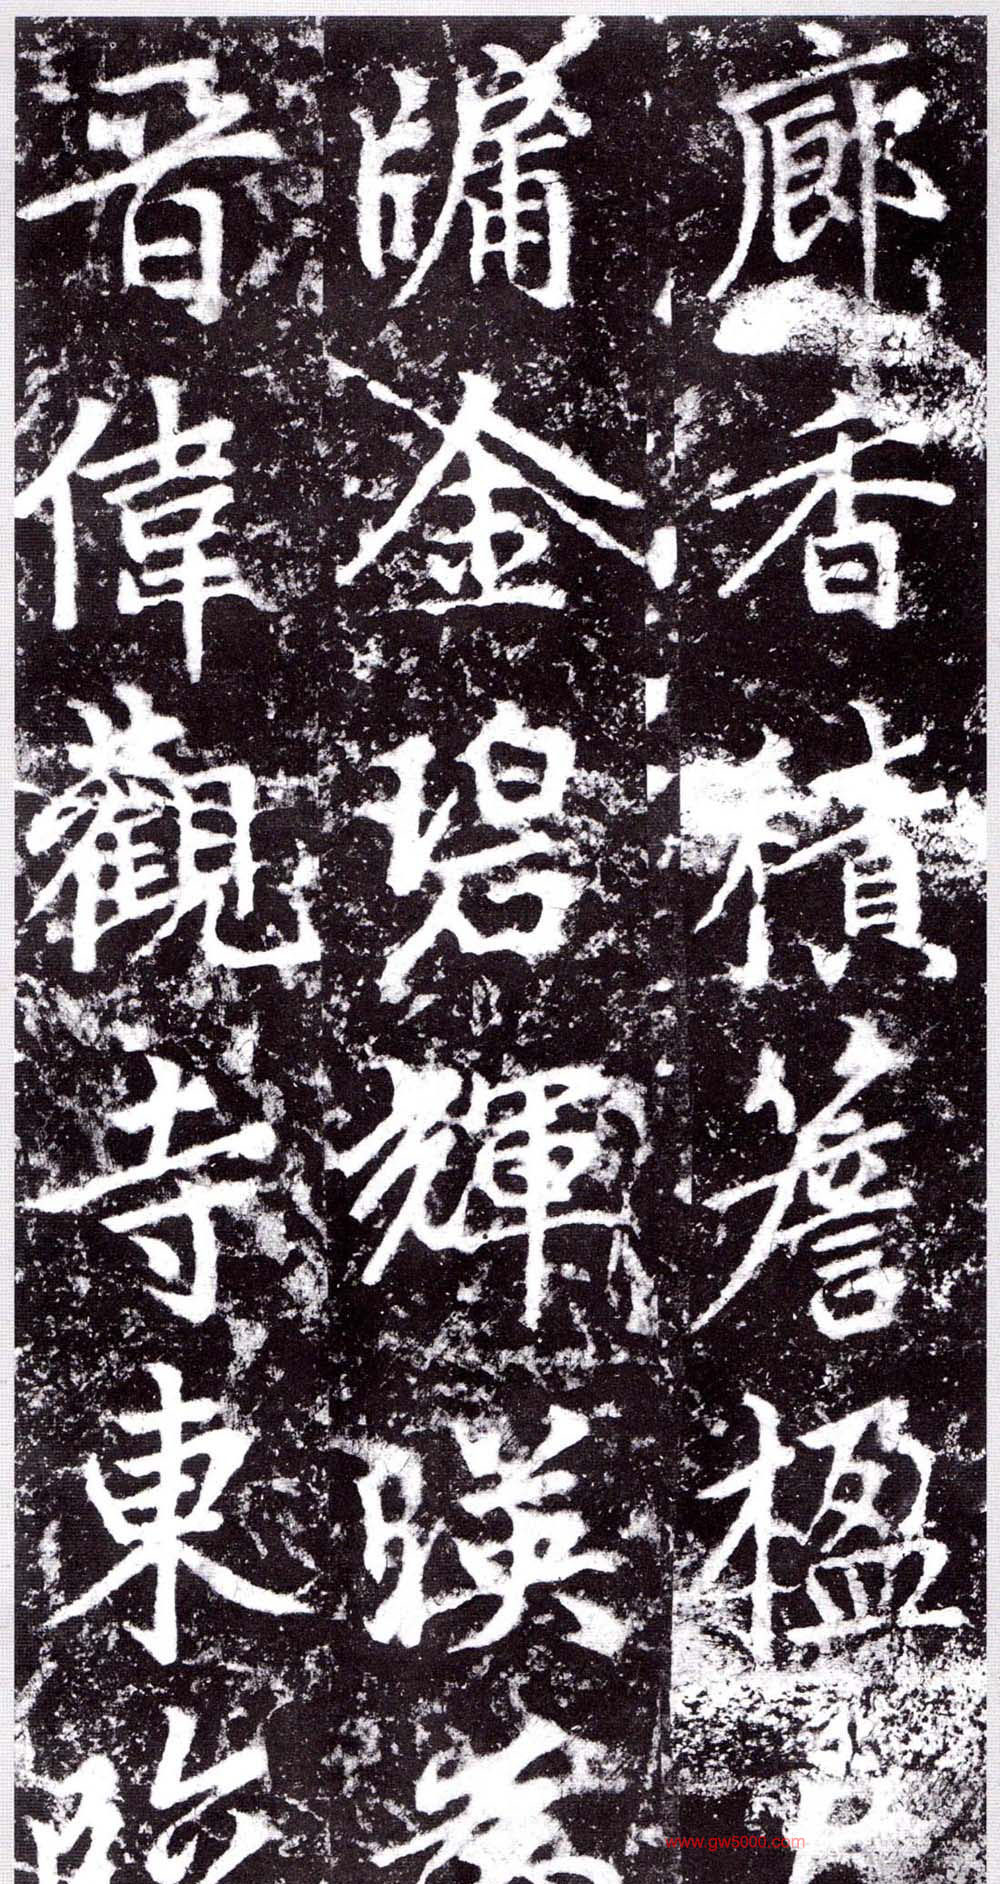 廊香積簷楹
牖金碧輝暎為
晉偉觀寺東臨
www.gw5000.com